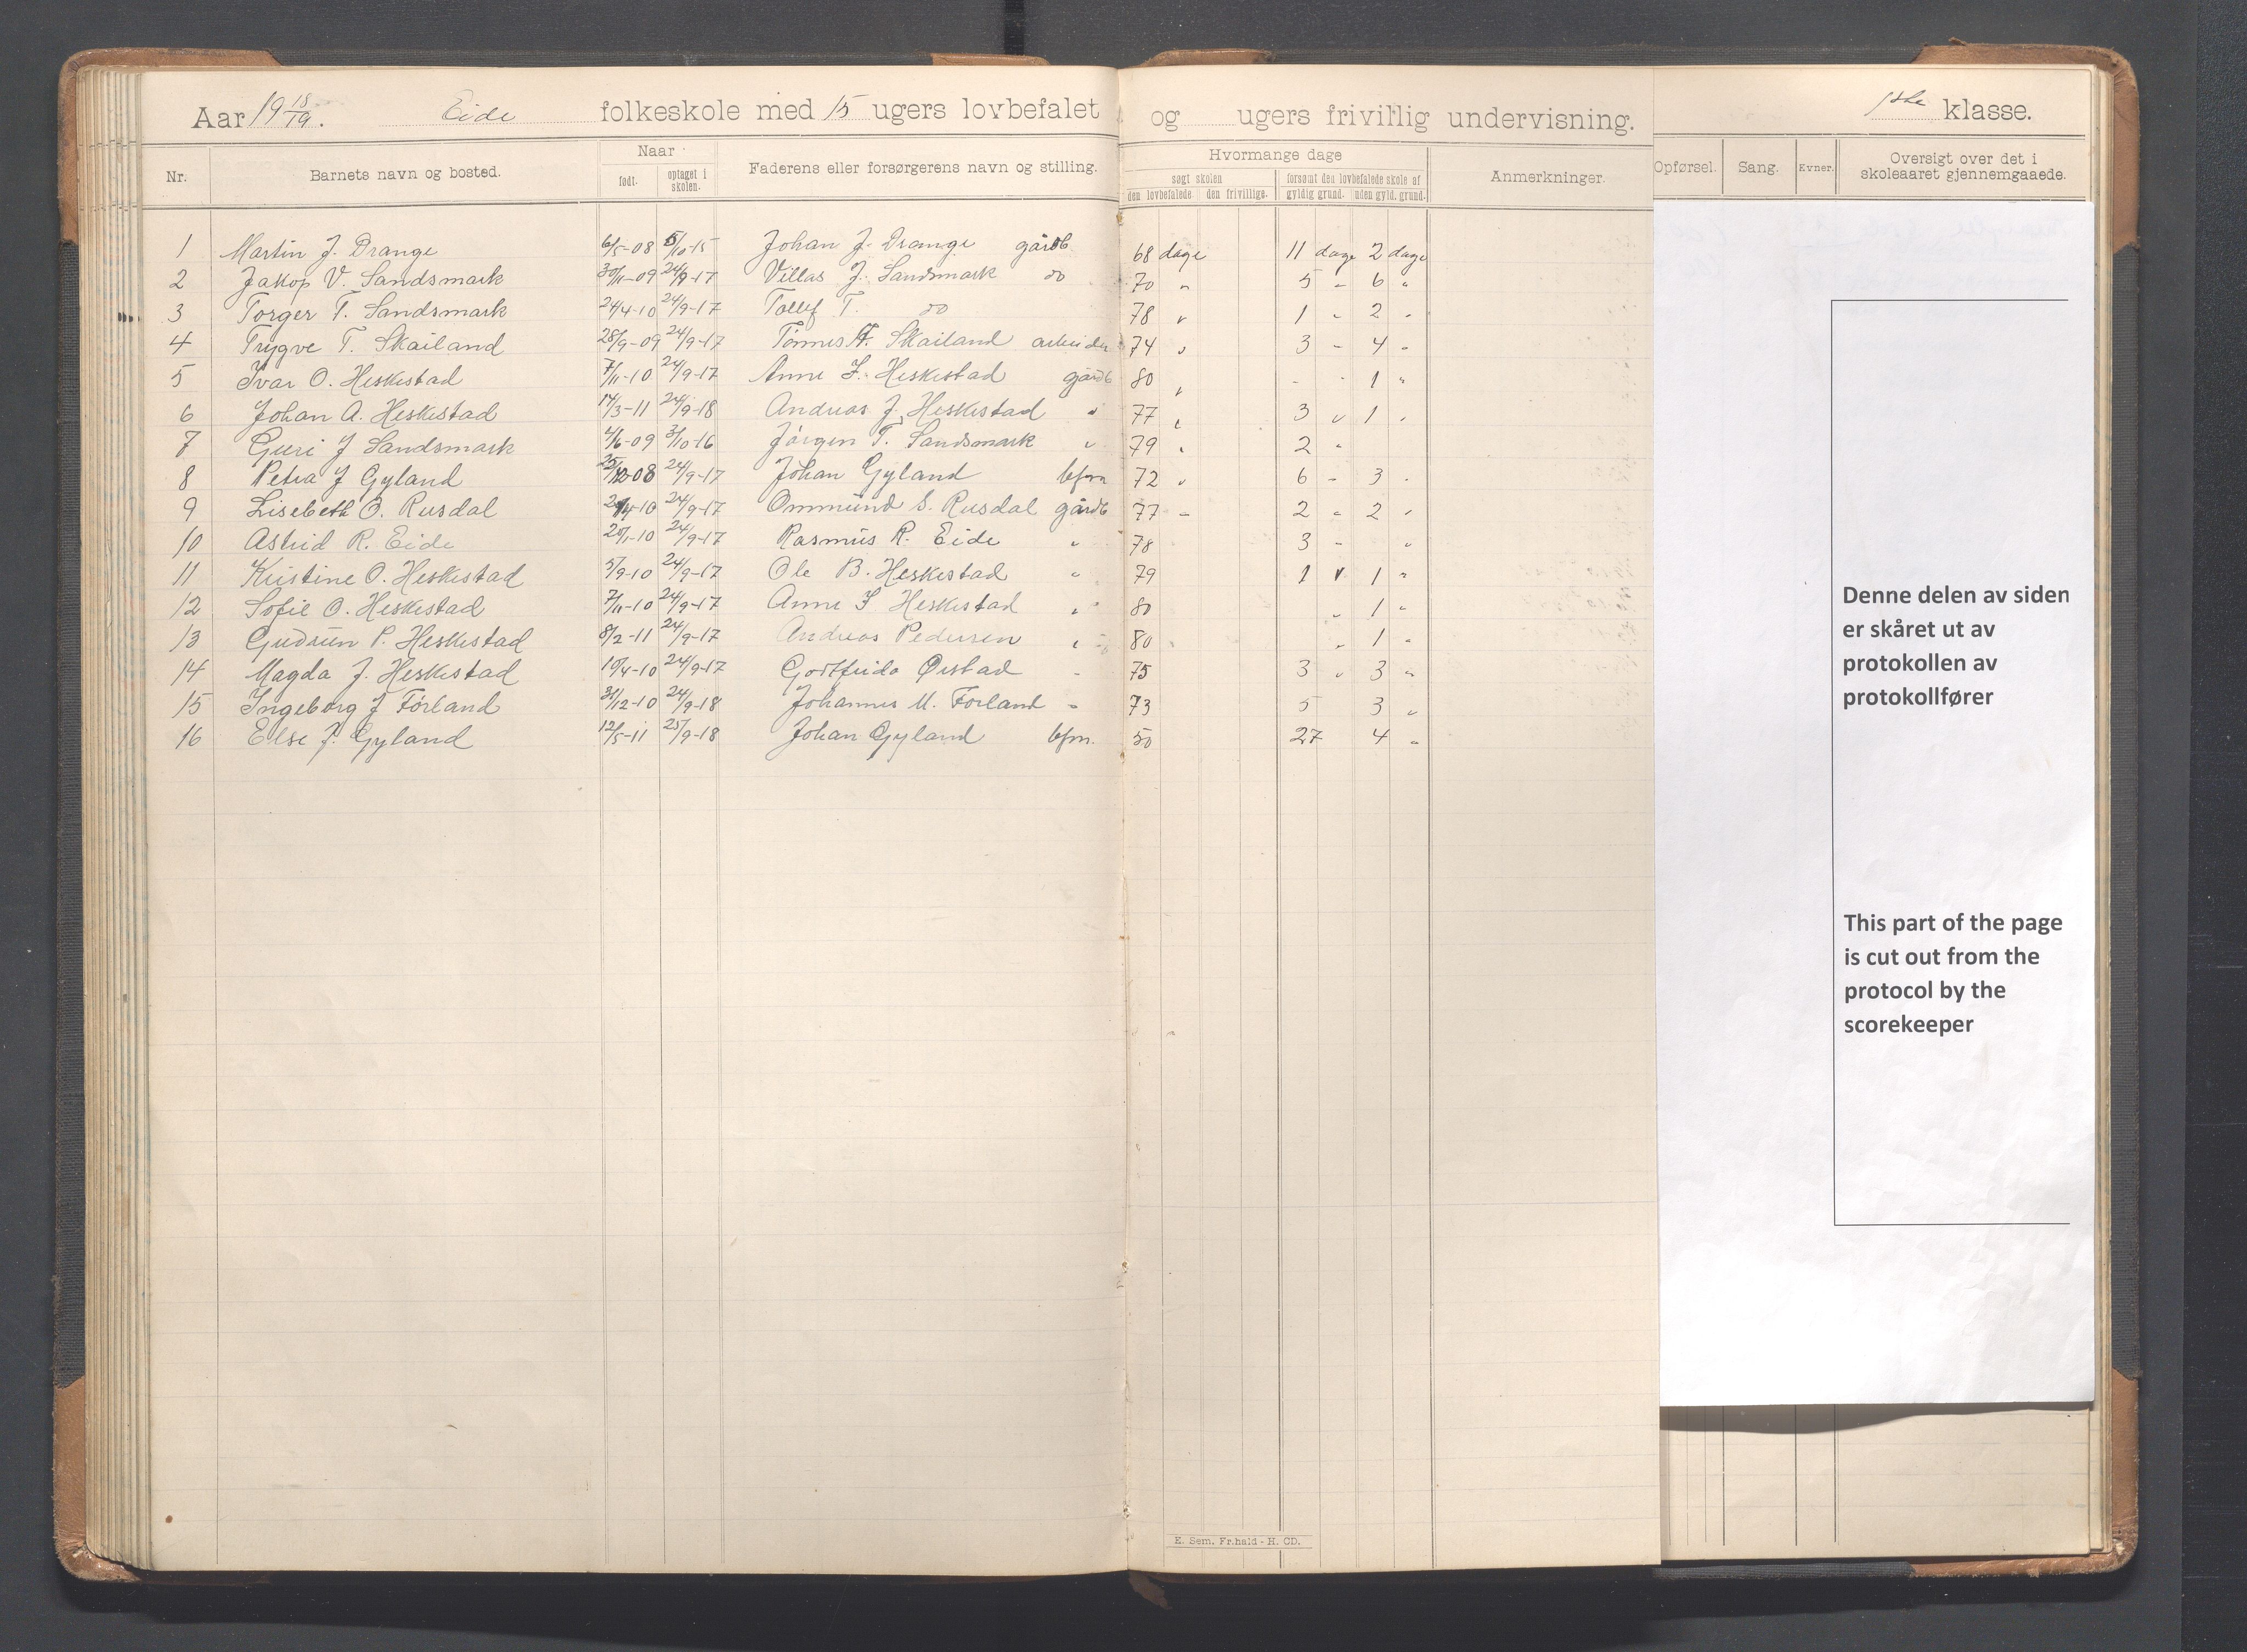 Aar 19 18/19. Eide folkeskole med 15 ugers lovbefalet og ugers frivillig undervisning. 1ste klasse.
Nr. Barnets navn og bosted. Naar født. optaget i skolen. Faderens eller forsørgerens navn og stilling. Hvormange dage søgt skolen den lovbefalede den frivillige. forsømt den lovbefalede skole af gyldig grund. uden gyld. grund. Anmerkninger. Opførsel. Sang. Evner. Oversigt over det i skoleaaret gjennemgaaede.
1 Martin J. Drange 6/5-08 5/10-15 Johan J. Drange gårdb 68 dage 11 dage 2 dage
2 Jakop V. Sandsmark 30/11-09 24/9-17 Villas J. Sandsmark do 70 " 5 " 6 "
3 Torger T. Sandsmark 24/4-10 24/9-17 Tollef T. do 78 " 1 " 2 "
4 Trygve T. Skailand 28/9-09 24/9-17 Tönnes T. Skailand arbeider 74 " 3 " 4 "
5 Ivar O. Heskestad 7/11-10 24/9-17 Anne I. Heskestad gårdb 80 " - " 1 "
6 Johan A. Heskestad 14/3-11 24/9-18 Andreas J. Heskestad " 77 " 3 " 1 "
7 Guri J Sandsmark 4/6-09 3/10-16 Jörgen T. Sandsmark " 79 " 2 "
8 Petra J Gyland 25/12-08 24/9-17 Johan Gyland bfm 72 " 6 " 3 "
9 Lisebeth O. Rusdal 24/4-10 24/9-17 Ommund S. Rusdal gårdb 77 " 2 " 2 "
10 Astrid R. Eide 20/1-10 24/9-17 Rasmus R. Eide " 78 3 " "
11 Kristine O. Heskestad 5/9-10 24/9-17 Ole B. Heskestad " 79 1 " 1 "
12 Sofie O. Heskestad 7/11-10 24/9-17 Anne I Heskestad " 80 " 1 "
13 Gudrun P. Heskestad 8/2-11 24/9-17 Andreas Pedersen " 80 " 1 "
14 Magda J. Heskestad 10/4-10 24/9-17 Gottfrida Örstad " 75 3 " 3 "
15 Ingeborg J Förland 31/12-10 24/9-18 Johannes M. Förland " 73 5 3 "
16 Else J. Gyland 12/5-11 25/9-18 Johan Gyland bfm. 50 27 4 "
Denne delen av siden
er skåret ut av
protokollen av
protokollfører
This part of the page
is cut out from the
protocol by the
scorekeeper
E. Sem. Fr.hald - H. CD.